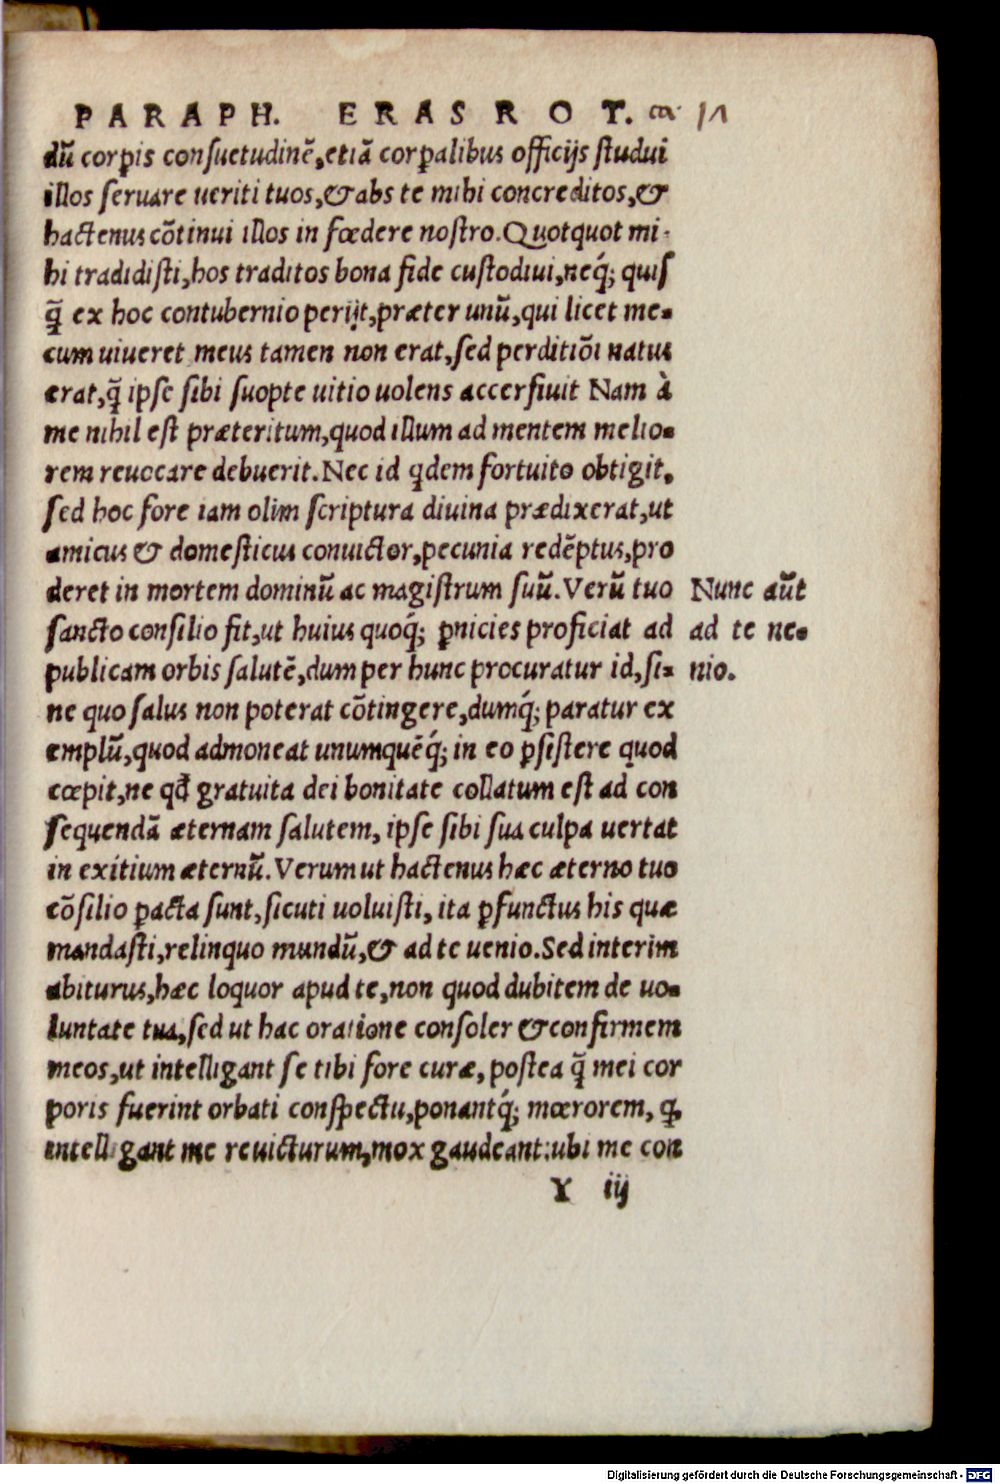 PARAPH. ERAS ROT. ca. 17
dū corꝑis conſuetudinē, etiā corꝑalibus officijs ſtudui
illos ſeruare ueriti tuos, & abs te mihi concreditos, &
hactenus cōtinui illos in fœdere noſtro. Quotquot mi-
hi tradidiſti, hos traditos bona fide cuſtodiui, neq́; quiſ
q̄ ex hoc contubernio perijt, præter unū, qui licet me-
cum uiueret meus tamen non erat, ſed perditiōi natus
erat, q̄ ipſe ſibi ſuopte uitio uolens accerſiuit Nam à
me nihil eſt præteritum, quod illum ad mentem melio-
rem reuocare debuerit. Nec id qdem fortuito obtigit,
ſed hoc fore iam olim ſcriptura diuina prædixerat, ut
amicus & domeſticus conuictor, pecunia redēptus, pro
deret in mortem dominū ac magiſtrum ſuū. Verū tuo
ſancto conſilio fit, ut huius quoq́; ꝑnicies proficiat ad
publicam orbis ſalutē, dum per hunc procuratur id, ſi-
ne quo ſalus non poterat cōtingere, dumq́; paratur ex
emplū, quod admoneat unumquēq́; in eo ꝑſiſtere quod
cœpit, ne qđ gratuita dei bonitate collatum eſt ad con
ſequendā æternam ſalutem, ipſe ſibi ſua culpa uertat
in exitium æternū. Verum ut hactenus hæc æterno tuo
cōſilio ꝑacta ſunt, ſicuti uoluiſti, ita ꝑfunctus his quæ
mandaſti, relinquo mundū, & ad te uenio. Sed interim
abiturus, hæc loquor apud te, non quod dubitem de uo-
luntate tua, ſed ut hac oratione conſoler & confirmem
meos, ut intelligant ſe tibi fore curæ, poſtea q̄ mei cor
poris fuerint orbati conſpectu, ponantq́; mœrorem, q,
intelligant me reuicturum, mox gaudeant: ubi me con
Y iij
Nunc aūt
ad te ue-
nio.
Digitalisierung gefördert durch die Deutsche Forschungsgemeinschaft - DFG